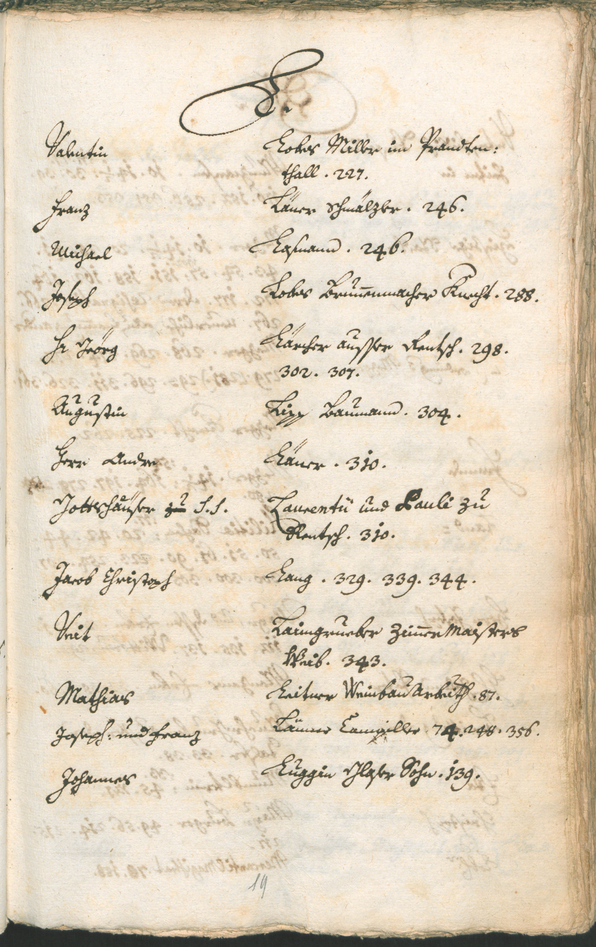 L.
Valentin Lobes Miller im Prandten:
thall. 227.
Franz Läner Schmälzler. 246.
Michael Lehmann. 246.
Joseph Lobes Brunnenmacher Knecht. 288.
Hr Jeörg Lärcher ausser Rentsch. 298.
302. 307.
Augustin Lipp Baumann. 304.
Herr Andre Läner. 310.
Gottshäuser zu S.S. Laurentii und Pauli zu
Rentsch. 310.
Jacob Christoph Lang. 329. 339. 344.
Veit Laimgrueber Zimmermaisters
Weib. 343.
Mathias Leitner Weinbau Arbeith. 87.
Joseph: und Franz 74. 248. 356.
Johannes Luggin Glaser Sohn. 139.
19